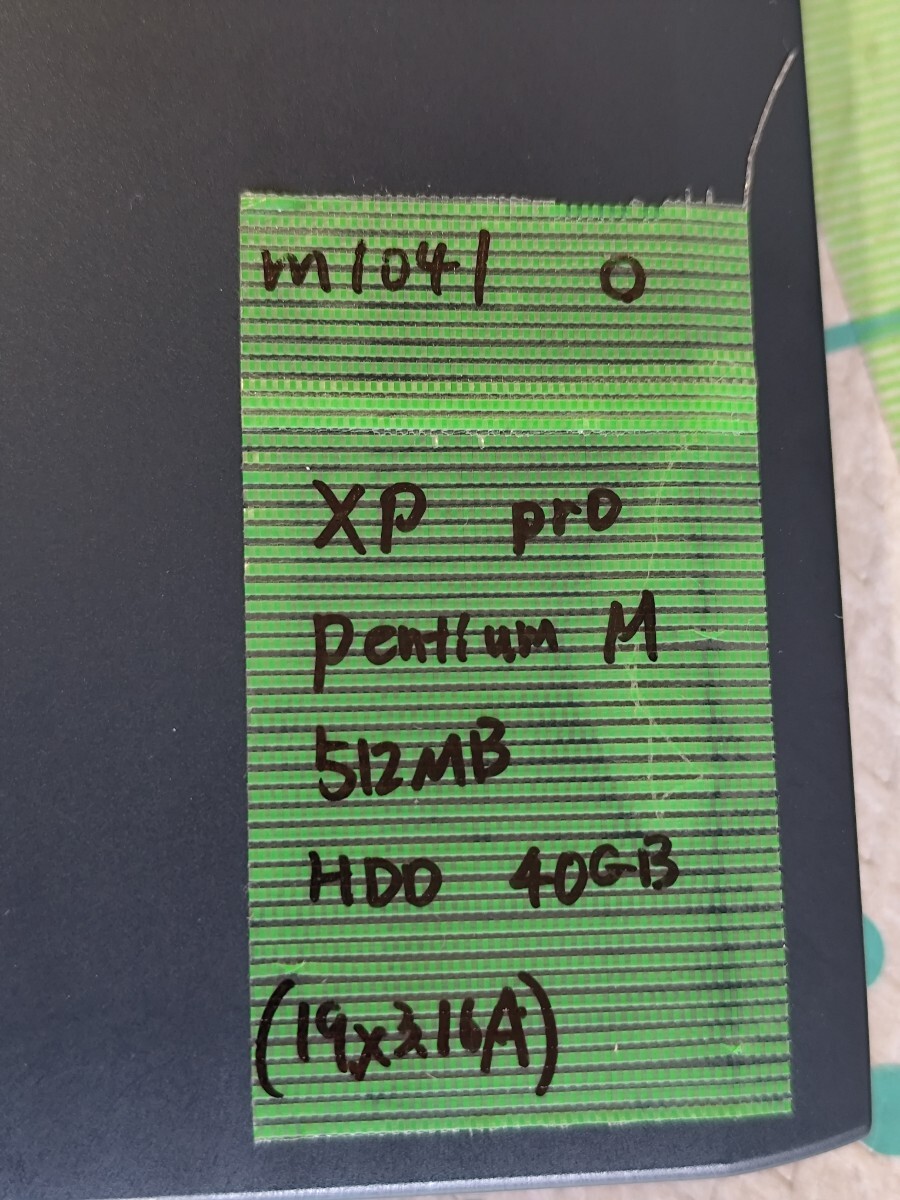 m1041 O
XP pro
pentium M
512MB
HDD 40GB
(19x3.16A)